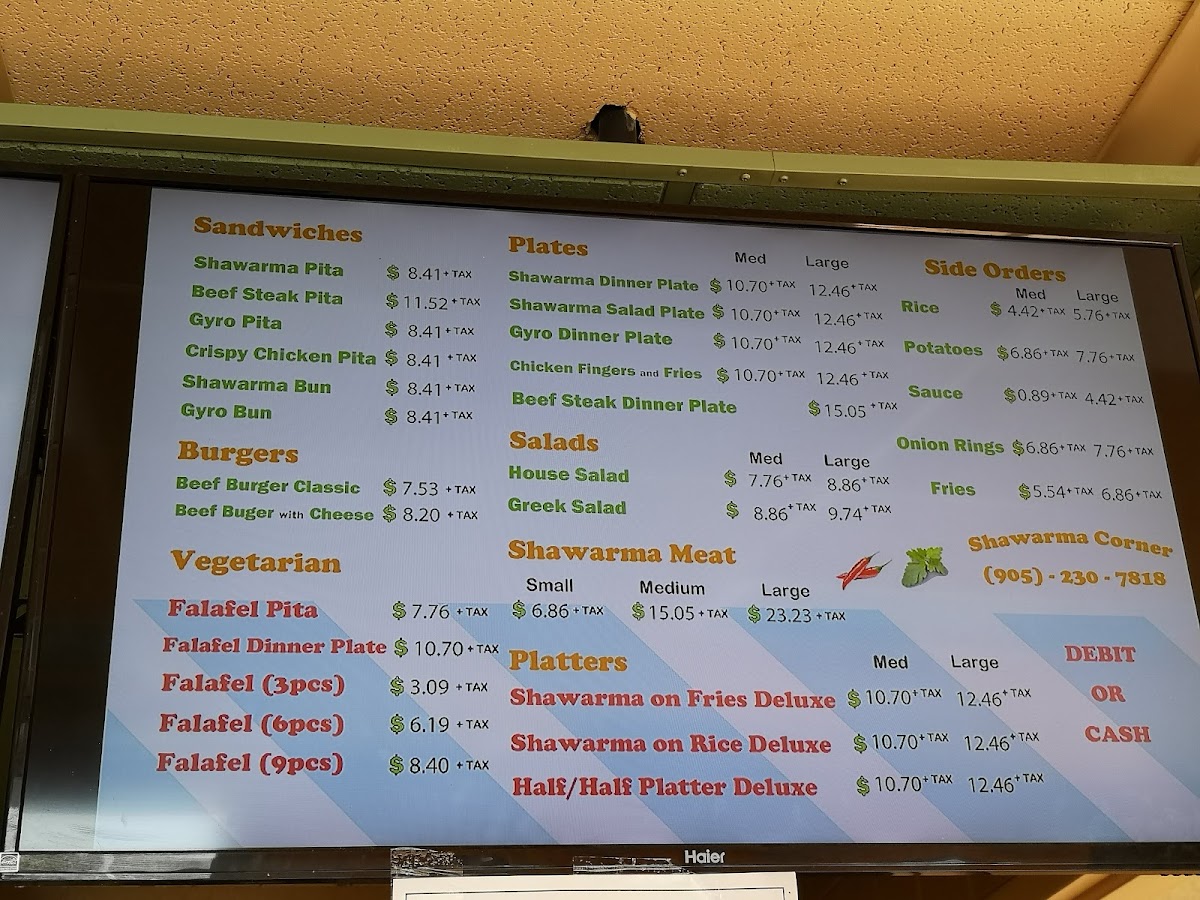 Sandwiches
Shawarma Pita $ 8.41 + TAX
Beef Steak Pita $ 11.52 + TAX
Gyro Pita $ 8.41 + TAX
Crispy Chicken Pita $ 8.41 + TAX
Shawarma Bun $ 8.41 + TAX
Gyro Bun $ 8.41 + TAX
Burgers
Beef Burger Classic $ 7.53 + TAX
Beef Buger with Cheese $ 8.20 + TAX
Vegetarian
Falafel Pita $ 7.76 + TAX
Falafel Dinner Plate $ 10.70 + TAX
Falafel (3pcs) $ 3.09 + TAX
Falafel (6pcs) $ 6.19 + TAX
Falafel (9pcs) $ 8.40 + TAX
Plates Med Large
Shawarma Dinner Plate $ 10.70 + TAX 12.46 + TAX
Shawarma Salad Plate $ 10.70 + TAX 12.46 + TAX
Gyro Dinner Plate $ 10.70 + TAX 12.46 + TAX
Chicken Fingers and Fries $ 10.70 + TAX 12.46 + TAX
Beef Steak Dinner Plate $ 15.05 + TAX
Salads Med Large
House Salad $ 7.76 + TAX 8.86 + TAX
Greek Salad $ 8.86 + TAX 9.74 + TAX
Shawarma Meat
Small Medium Large
$ 6.86 + TAX $ 15.05 + TAX $ 23.23 + TAX
Platters Med Large
Shawarma on Fries Deluxe $ 10.70 + TAX 12.46 + TAX
Shawarma on Rice Deluxe $ 10.70 + TAX 12.46 + TAX
Half/Half Platter Deluxe $ 10.70 + TAX 12.46 + TAX
Side Orders
Med Large
Rice $ 4.42 + TAX 5.76 + TAX
Potatoes $ 6.86 + TAX 7.76 + TAX
Sauce $ 0.89 + TAX 4.42 + TAX
Onion Rings $ 6.86 + TAX 7.76 + TAX
Fries $ 5.54 + TAX 6.86 + TAX
Shawarma Corner
(905) - 230 - 7818
DEBIT
OR
CASH
Haier